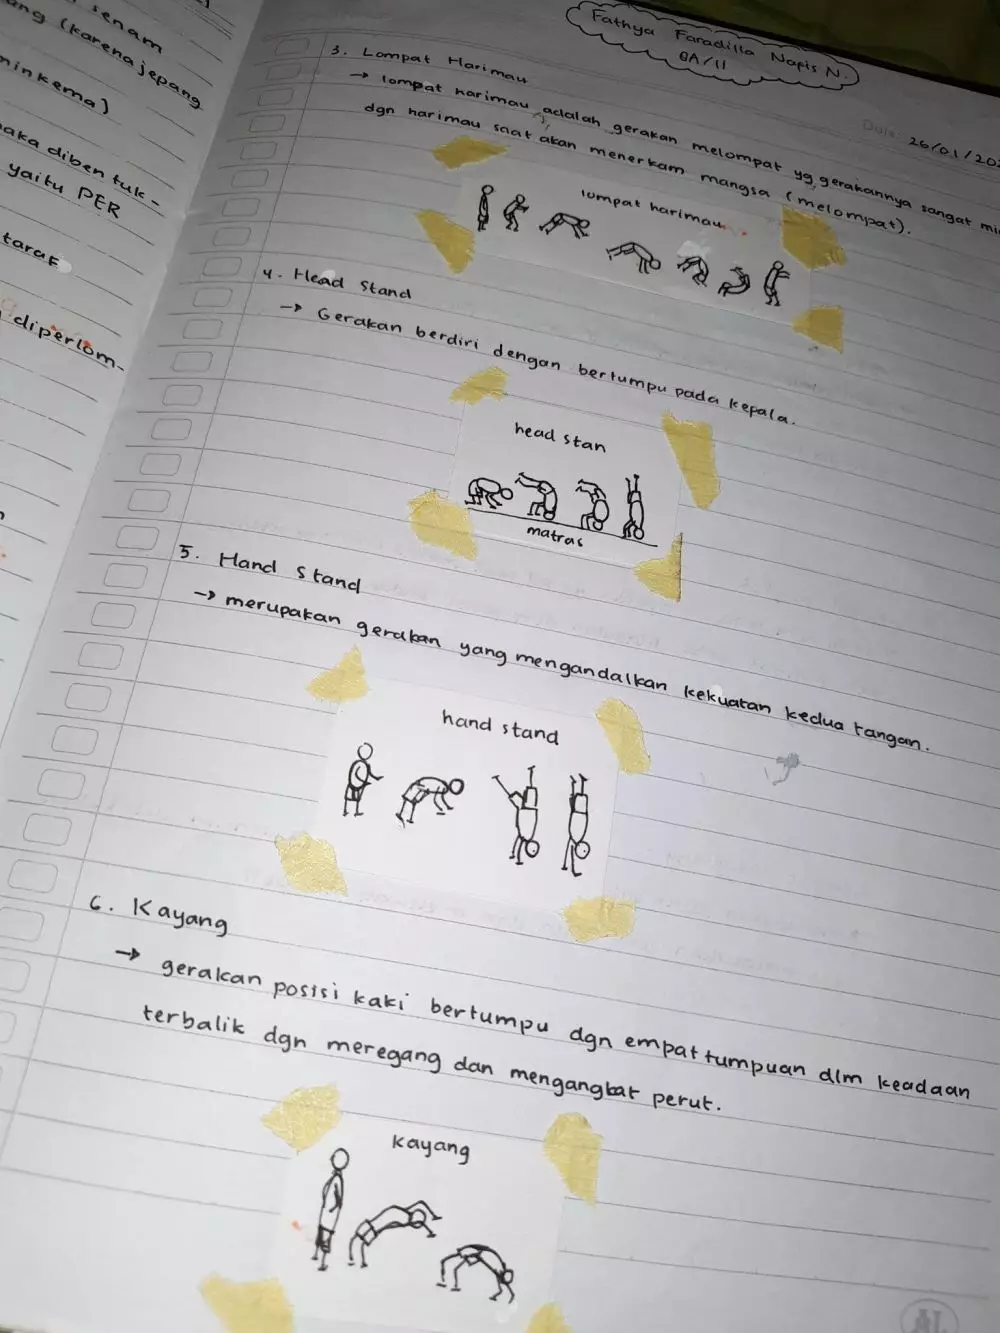 senam
ang (karena jepang
minkema)
aka diben tuk -
yaitu PER
taraf
diperlom-
Fathya Faradilla Napis N.
8A/11
Date 26/01/202
3. Lompat Harimau
→ lompat harimau adalah gerakan melompat yg gerakannya sangat mi
dgn harimau saat akan menerkam mangsa (melompat).
lompat harimau
4. Head Stand
→ Gerakan berdiri dengan bertumpu pada kepala.
head stan
matras
5. Hand Stand
→ merupakan gerakan yang mengandalkan kekuatan kedua tangan.
hand stand
6. Kayang
→ gerakan posisi kaki bertumpu dgn empat tumpuan dlm keadaan
terbalik dgn meregang dan mengangkat perut.
kayang